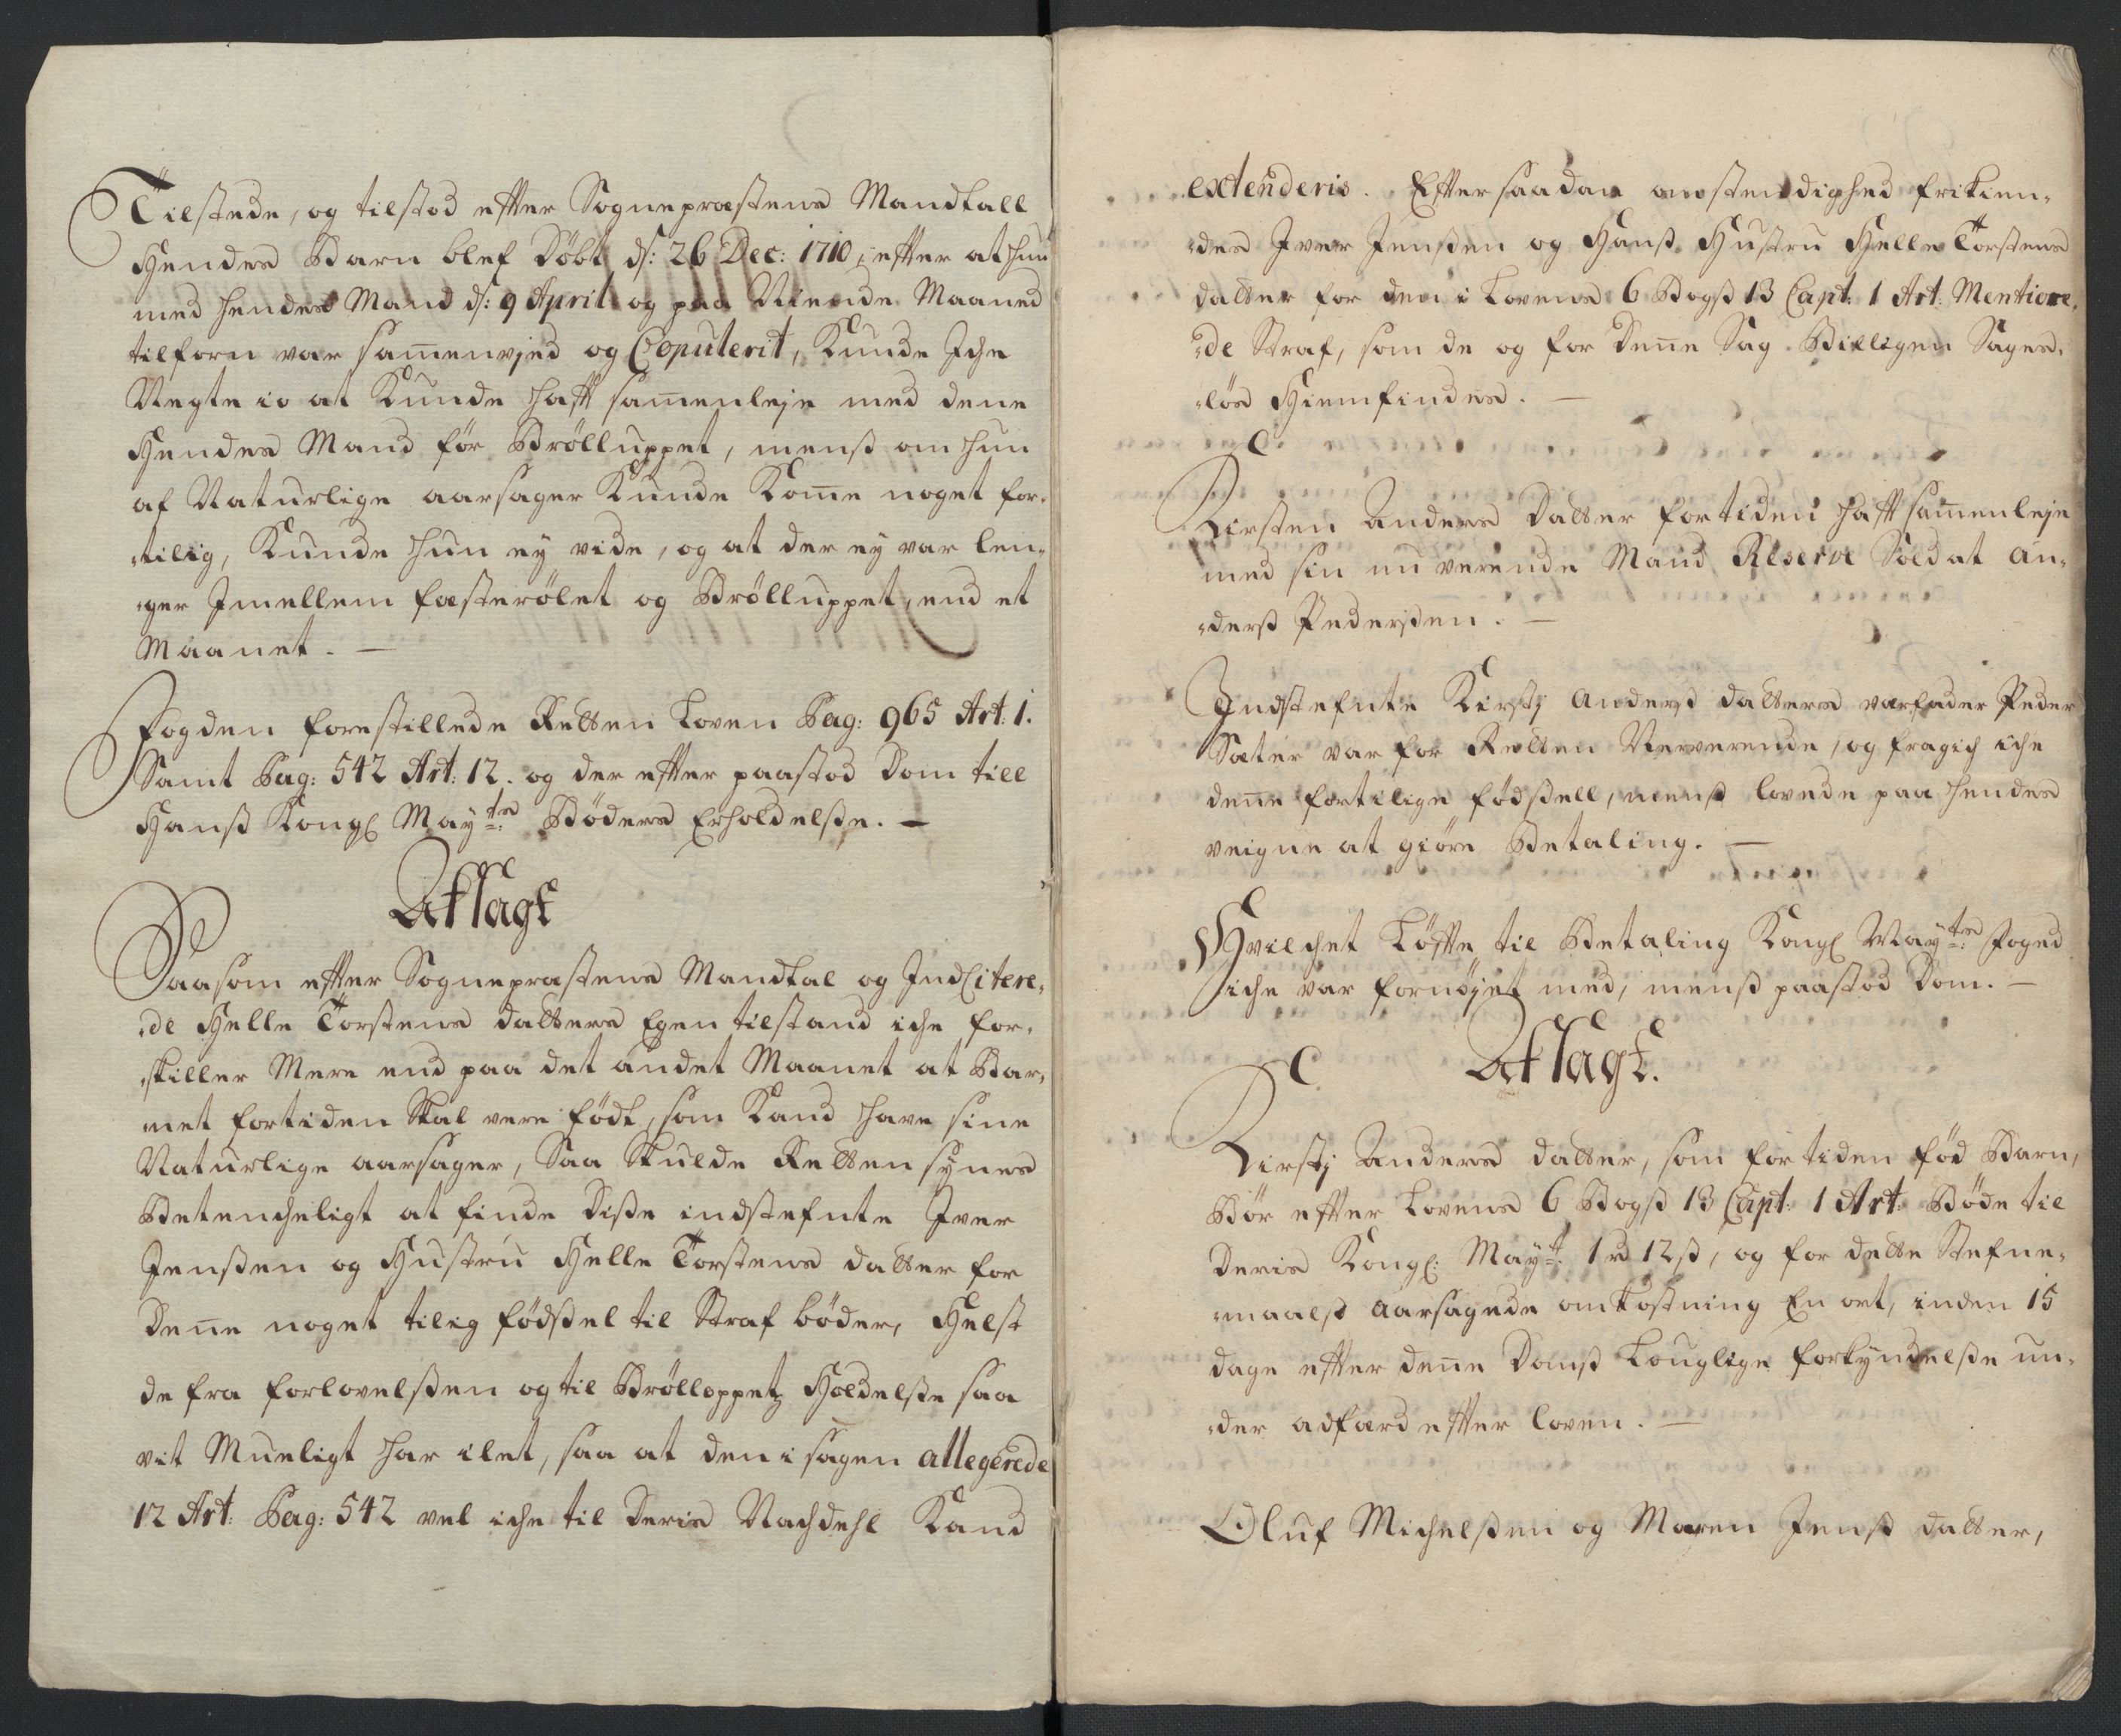 Tilstede, og tilstod efter Sognepræstens Mandtall
Hendes Barn blef Döbt d: 26 Dec: 1710, efter at hun
med hendes Mand d: 9 April og paa Niende Maaned
tilforn var samenvjed og Copulerit, Kunde Iche
Negte io at Kunde haft samenleje med dene
Hendes Mand för Bröllupet, menß om hun
af Naturlige aarsager Kunde Kome noget for-
tilig, Kunde hun ey vide, og at der ey var len-
ger Imellem fæsterölet og Brölluppet, end et
Maanet. —
Fogden forestillede Retten Loven Pag: 965 Art: 1.
Samt Pag: 542 Art: 12. og der efter paastod Dom till
Hanß Kongl Mayts Böders Erholdelße. —
Afsagt
Saasom efter Sognepræstens Mandtal og Indcitere-
de Helle Torstens datters Egen tilstand iche for-
skiller Mere end paa det andet Maanet at Bar-
net fortiden Skal vere födt, som Kand have sine
Naturlige aarsager, Saa Skulde Retten synes
Betencheligt at finde Diße indstefnte Iver
Jenßen og Hustru Helle Torstens datter for
Dene noget tilig födßel til Straf böder, Helst
de fra forlovelßen og til Brölloppetz Holdelße saa
vit Mueligt har ilet, saa at den i sagen allegerede
12 Art: Pag: 542 vel iche til Deris Nachdehl Kand
extenderis. Efter saadan omstendighed frikien-
des Iver Jenßen og Hanß Hustru Helle Torstens
datter for den i Lovens 6 Bogß 13 Capt: 1 Art: Mentione-
de Straf, som de og for Dene Sag Billigen Sages-
lös Hiemfindes. —
Kirsten Anders Datter fortiden haft samenleje
med sin nu verende Mand Reserve Soldat An-
derß Pederßen. —
Indstefnte Kirstj Anderß datters værfader Peder
Sæter var for Retten Nerverende, og fragich iche
dene fortilige födßell, menß lovede paa hendes
veigne at giöre Betaling. —
Hvilchet Löfte til Betaling Kongl Mayts Foged
iche var fornöjet med, menß paastod Dom. —
Afsagt.
Kirstj Anders datter, som for tiden föd Barn,
Bör efter Lovens 6 Bogß 13 Capt: 1 Art: Böde til
Deris Kongl: Mayt: 1 rd 12 ß, og for dette Stefne-
maalß Aarsagede omkostning En ort, inden 15
dage efter dene Domß Louglige forkyndelße un-
der adfærd efter loven. —
Oluf Michelßen og Maren Jenß datter,